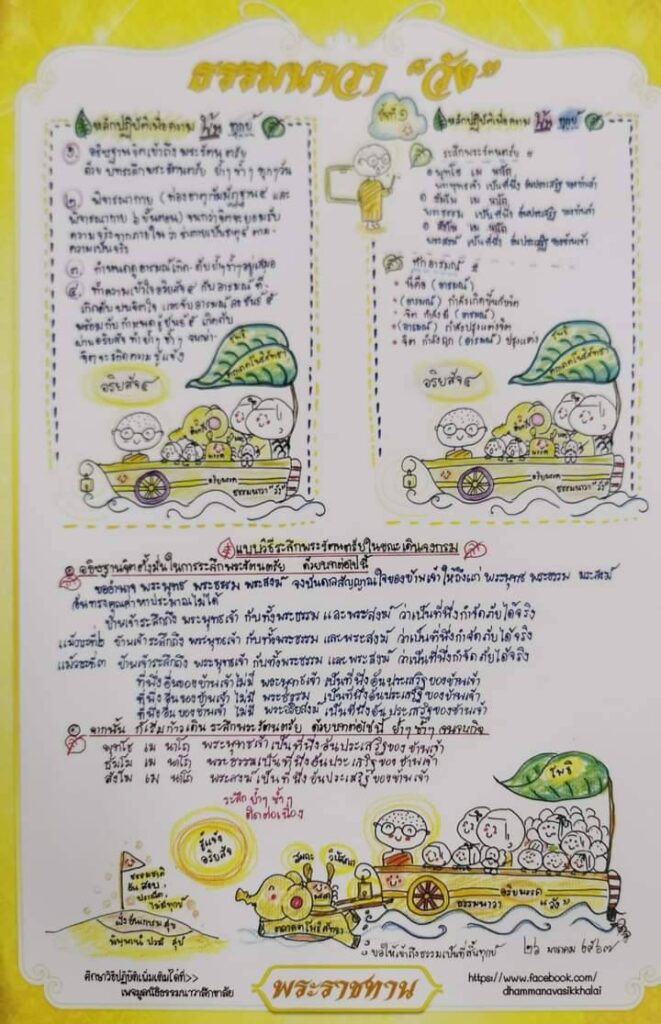 ธรรมนาวา "วัง"
หลักปฏิบัติเพื่อความ พ้น ทุกข์
๑. อธิษฐานจิตเข้าถึง พระรัตนตรัย
ด้วย บทระลึกพระรัตนตรัย ย้ำๆ ซ้ำๆ ทุกวัน
๒. พิจารณากาย (ท่องธาตุกัมมัฏฐาน ๔ และ
ความจริงจากภายใน ว่า
ความเป็นจริง
๓. กำหนดดูอารมณ์เกิด-ดับ ย้ำๆ ซ้ำๆ
๔. ทำความเข้าใจอริยสัจ ๔ กับ อารมณ์ ที่
อริยสัจ ๔
โพธิ
ตถาคตโพธิศรัทธา
อริยมรรค
ธรรมนาวา "วัง"
วันที่ ๑
หลักปฏิบัติเพื่อความ พ้น ทุกข์
ระลึกพระรัตนตรัย
พุทโธ เม นาโถ
พระพุทธเจ้า เป็นที่พึ่ง อันประเสริฐ ของข้าเจ้า
ธัมโม เม นาโถ
พระธรรม เป็นที่พึ่ง อันประเสริฐ ของข้าเจ้า
สังโฆ เม นาโถ
พระสงฆ์ เป็นที่พึ่ง อันประเสริฐ ของข้าเจ้า
ทักอารมณ์
นี่คือ (อารมณ์)
(อารมณ์) กำลังเกิดขึ้นกับจิต
จิต กำลังมี (อารมณ์)
(อารมณ์) กำลังปรุงแต่งจิต
จิต กำลังถูก (อารมณ์) ปรุงแต่ง
อริยสัจ ๔
โพธิ
ตถาคตโพธิศรัทธา
อริยมรรค
ธรรมนาวา "วัง"
แบบวิธีระลึกพระรัตนตรัยในขณะเดินจงกรม
๑ อธิษฐานจิตตั้งมั่นในการระลึกพระรัตนตรัย ด้วยบทต่อไปนี้
ขออำนาจ พระพุทธ พระธรรม พระสงฆ์ จงบันดลสัญญาณใจของข้าเจ้า ให้ถึงแก่ พระพุทธ พระธรรม พระสงฆ์
อันทรงคุณค่าหาประมาณไม่ได้
ข้าเจ้าระลึกถึง พระพุทธเจ้า กับทั้งพระธรรม และพระสงฆ์ ว่าเป็นที่พึ่งกำจัดภัยได้จริง
แม้วาระที่๒ ข้าเจ้าระลึกถึง พระพุทธเจ้า กับทั้งพระธรรม และพระสงฆ์ ว่าเป็นที่พึ่งกำจัดภัยได้จริง
แม้วาระที่๓ ข้าเจ้าระลึกถึง พระพุทธเจ้า กับทั้งพระธรรม และพระสงฆ์ ว่าเป็นที่พึ่งกำจัดภัยได้จริง
ที่พึ่งอื่นของข้าเจ้าไม่มี พระพุทธเจ้า เป็นที่พึ่งอันประเสริฐของข้าเจ้า
ที่พึ่งอื่นของข้าเจ้า ไม่มี พระธรรม เป็นที่พึ่งอันประเสริฐ ของข้าเจ้า
ที่พึ่งอื่นของข้าเจ้า ไม่มี พระสงฆ์ เป็นที่พึ่งอันประเสริฐ ของข้าเจ้า
๒ จากนั้น ก็เริ่มก้าวเดิน ระลึกพระรัตนตรัย ด้วยบทต่อไปนี้ ย้ำๆ ซ้ำๆ
พุทโธ เม นาโถ พระพุทธเจ้าเป็นที่พึ่งอันประเสริฐของ ข้าเจ้า
ธัมโม เม นาโถ พระธรรมเป็นที่พึ่งอันประเสริฐ ของ ข้าเจ้า
สังโฆ เม นาโถ พระสงฆ์ เป็นที่พึ่งอันประเสริฐ ของข้าเจ้า
ระลึก ย้ำๆ ซ้ำๆ
ติดต่อเนื่อง
รู้แจ้ง
อริยสัจ
สมถะ วิปัสสนา
โพธิ
ธรรมชาติ
อัน สงบ,
ประณีต,
ไม่มีทุกข์
ฝั่งอันเกษม สุข
นิพพานัง ปรมัง สุขัง
ตถาคตโพธิศรัทธา
อริยมรรค
ธรรมนาวา "วัง"
ขอให้เข้าถึงธรรมเป็นที่สิ้นทุกข์
๒๖ มกราคม ๒๕๖๗
ศึกษาวิธีปฏิบัติเพิ่มเติมได้ที่>>
เพจมูลนิธิธรรมนาวาสิกขาลัย
พระราชทาน
https://www.facebook.com/
dhammanavasikkhalai